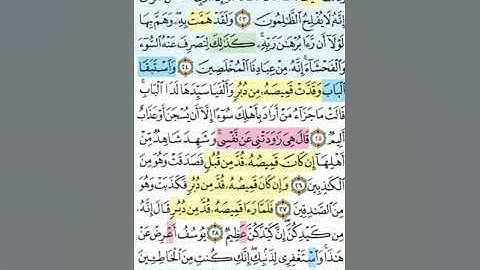 إِنَّهُۥ لَا يُفْلِحُ ٱلظَّٰلِمُونَ ٢٣ وَلَقَدْ هَمَّتْ بِهِۦ وَهَمَّ بِهَا
لَوْلَآ أَن رَّءَا بُرْهَٰنَ رَبِّهِۦ كَذَٰلِكَ لِنَصْرِفَ عَنْهُ ٱلسُّوٓءَ
وَٱلْفَحْشَآءَ إِنَّهُۥ مِنْ عِبَادِنَا ٱلْمُخْلَصِينَ ٢٤ وَٱسْتَبَقَا
ٱلْبَابَ وَقَدَّتْ قَمِيصَهُۥ مِن دُبُرٍ وَأَلْفَيَا سَيِّدَهَا لَدَا ٱلْبَابِ
قَالَتْ مَا جَزَآءُ مَنْ أَرَادَ بِأَهْلِكَ سُوٓءًا إِلَّآ أَن يُسْجَنَ أَوْ عَذَابٌ
أَلِيمٌ ٢٥ قَالَ هِىَ رَٰوَدَتْنِى عَن نَّفْسِى وَشَهِدَ شَاهِدٌ مِّنْ
أَهْلِهَآ إِن كَانَ قَمِيصُهُۥ قُدَّ مِن قُبُلٍ فَصَدَقَتْ وَهُوَ مِنَ
ٱلْكَٰذِبِينَ ٢٦ وَإِن كَانَ قَمِيصُهُۥ قُدَّ مِن دُبُرٍ فَكَذَبَتْ وَهُوَ
مِنَ ٱلصَّٰدِقِينَ ٢٧ فَلَمَّا رَءَا قَمِيصَهُۥ قُدَّ مِن دُبُرٍ قَالَ إِنَّهُۥ
مِن كَيْدِكُنَّ إِنَّ كَيْدَكُنَّ عَظِيمٌ ٢٨ يُوسُفُ أَعْرِضْ عَنْ
هَٰذَا وَٱسْتَغْفِرِى لِذَنۢبِكِ إِنَّكِ كُنتِ مِنَ ٱلْخَاطِـِٔينَ